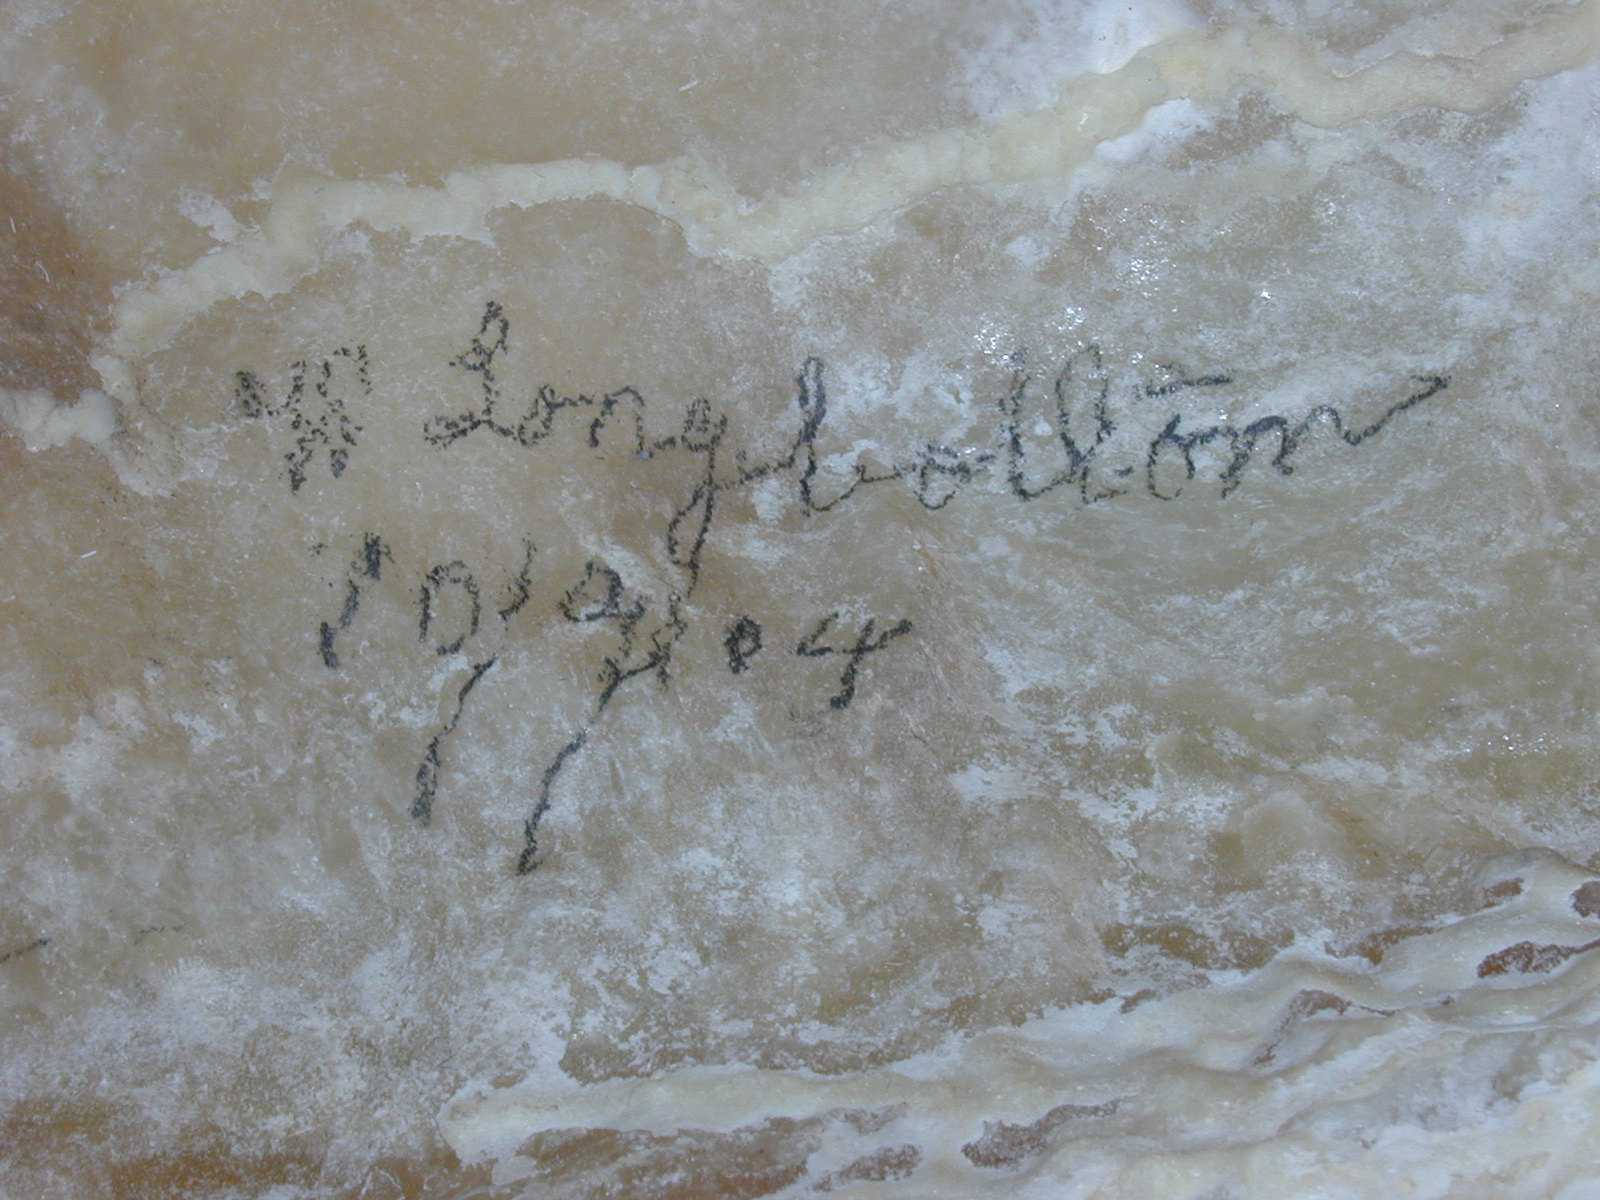 W Longbottom
10/9/04